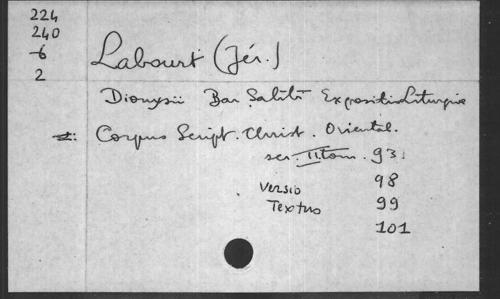 224
240
-6
2
Labourt (Jér.)
Dionysii Bar Salibi Expositio Liturgiae
Corpus Script. Christ. Oriental.
ser. II. tom. 93
98
Versio
Textus 99
101